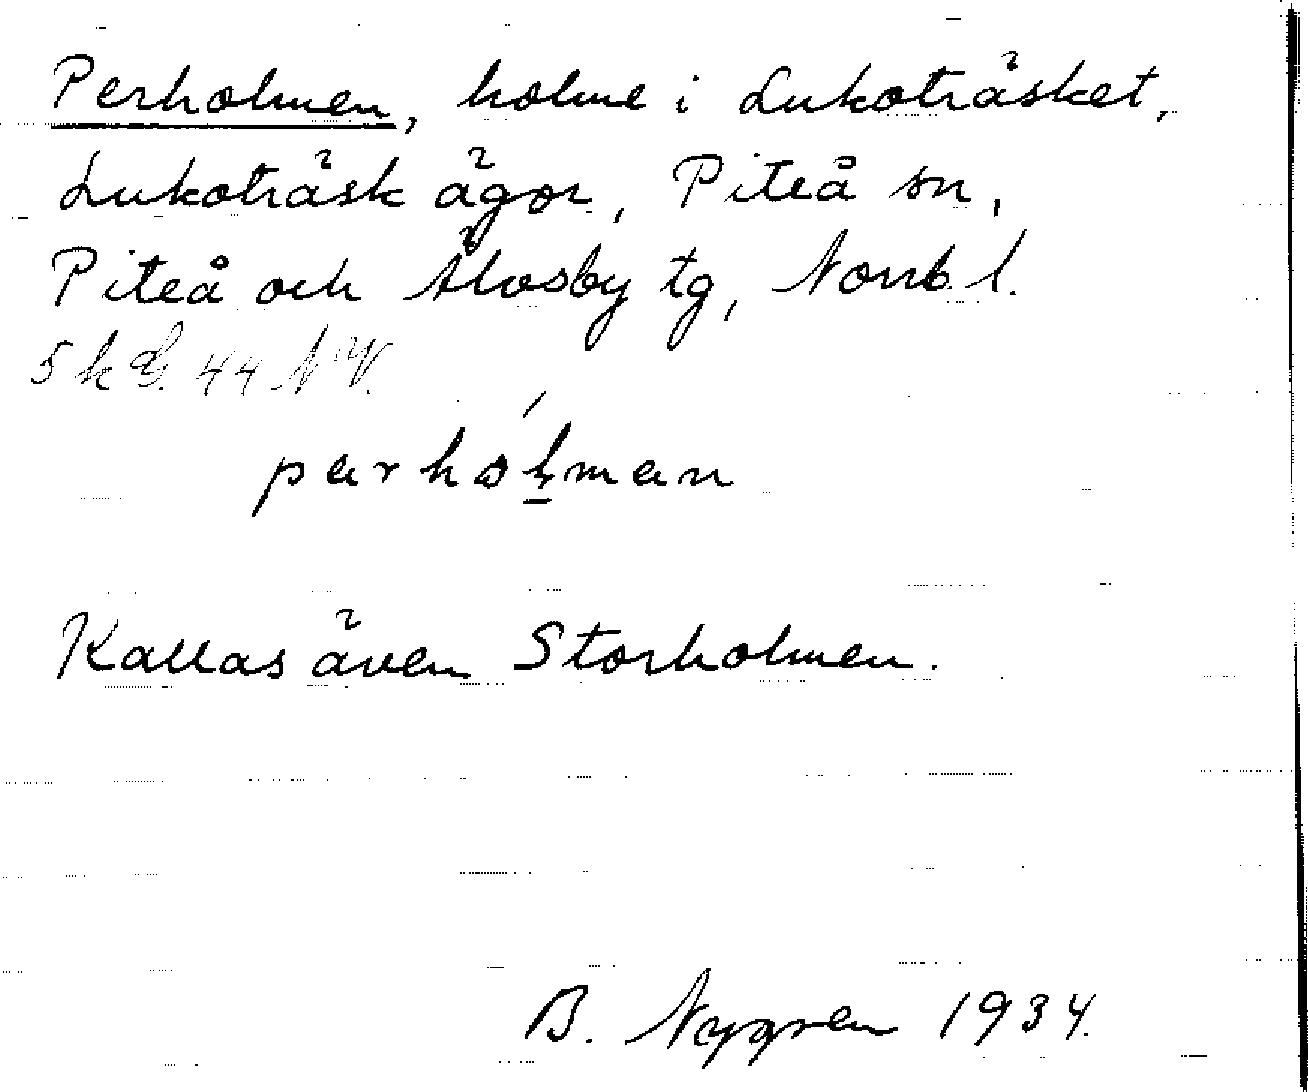 Perholmen, holme i Lukoträsket,
Lukoträsk ägor, Piteå sn,
Piteå och Älvsby tg, Norrb. l.
5 k G. 44 N V.
parhólman
Kallas även Storholmen.
B. Nygren 1934.